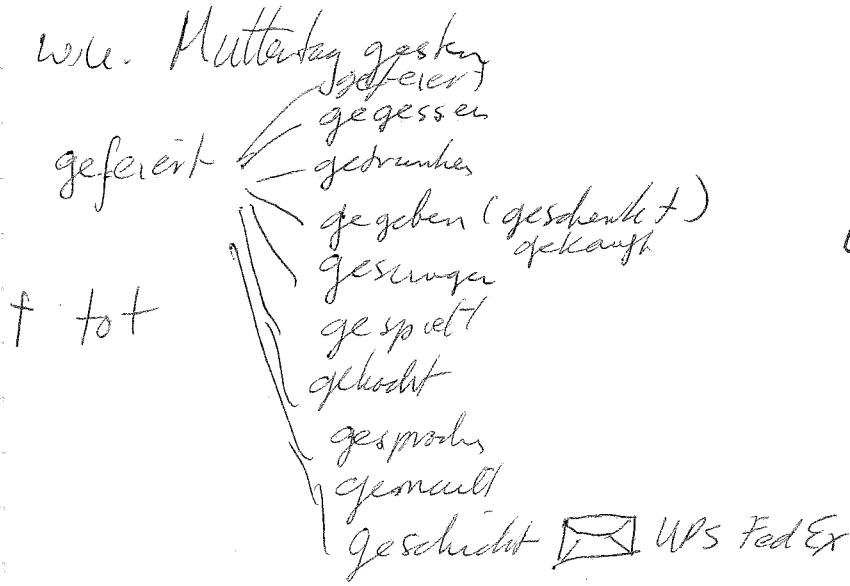 Muttertag gestern
gefeiert
gefeiert
gegessen
getrunken
gegeben (geschenkt)
gekauft
gesungen
† tot
gespielt
gekocht
gesprochen
gemailt
geschickt UPS FedEx